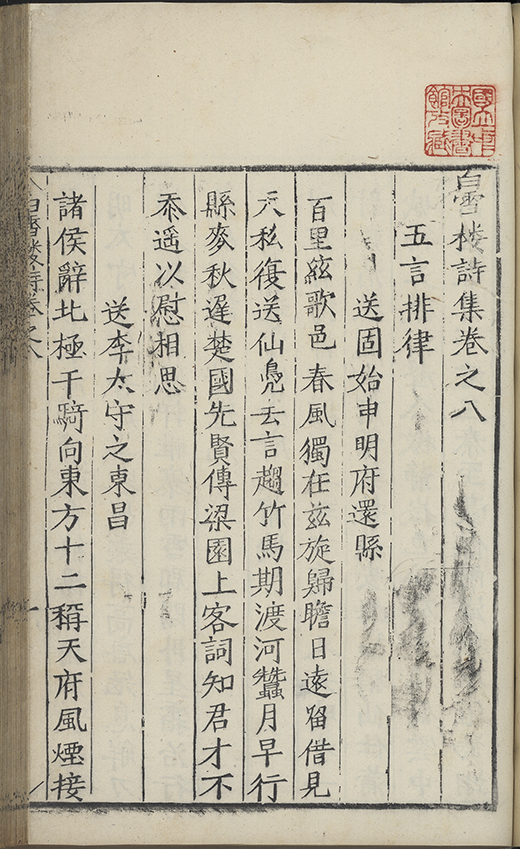 白雪楼詩集卷之八
五言排律
送固始申明府還縣
百里絃歌邑春風獨在兹旋歸瞻日遠留借見
天私復送仙凫去言趨竹馬期渡河蠶月早行
縣麥秋遲楚國先賢傳梁園上客詞知君才不
忝遥以慰相思
送李太守之東昌
諸侯辭北極千騎向東方十二稱天府風煙接
白雪樓詩卷之八